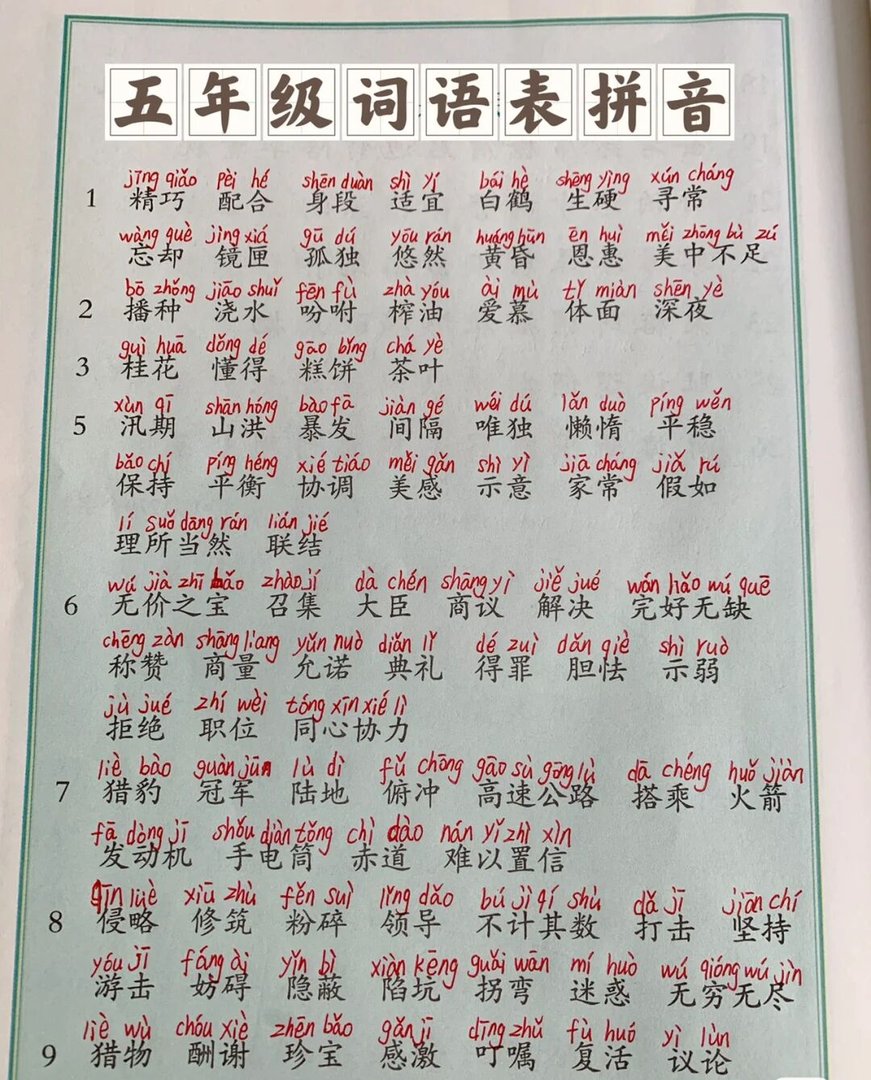 五年级词语表拼音
jīng qiǎo pèi hé shēn duàn shì yí bái hè shēng yìng xún cháng
1 精巧 配合 身段 适宜 白鹤 生硬 寻常
wàng què jìng xiá gū dú yōu rán huáng hūn ēn huì měi zhōng bù zú
忘却 镜匣 孤独 悠然 黄昏 恩惠 美中不足
bō zhǒng jiāo shuǐ fēn fù zhà yóu ài mù tǐ miàn shēn yè
2 播种 浇水 吩咐 榨油 爱慕 体面 深夜
guì huā dǒng dé gāo bǐng chá yè
3 桂花 懂得 糕饼 茶叶
xùn qī shān hóng bào fā jiàn gé wéi dú lǎn duò píng wěn
5 汛期 山洪 暴发 间隔 唯独 懒惰 平稳
bǎo chí píng héng xié tiáo měi gǎn shì yì jiā cháng jiǎ rú
保持 平衡 协调 美感 示意 家常 假如
lí suǒ dāng rán lián jié
理所当然 联结
wú jià zhī bǎo zhào jí dà chén shāng yì jiě jué wán hǎo wú quē
6 无价之宝 召集 大臣 商议 解决 完好无缺
chēng zàn shāng liang yǔn nuò diǎn lǐ dé zuì dǎn qiè shì ruò
称赞 商量 允诺 典礼 得罪 胆怯 示弱
jù jué zhí wèi tóng xīn xié lì
拒绝 职位 同心协力
liè bào guàn jūn lù dì fǔ chōng gāo sù gōng lù dā chéng huǒ jiàn
7 猎豹 冠军 陆地 俯冲 高速公路 搭乘 火箭
fā dòng jī shǒu diàn tǒng chì dào nán yǐ zhì xìn
发动机 手电筒 赤道 难以置信
qīn lüè xiū zhù fěn suì lǐng dǎo bú jì qí shù dǎ jī jiān chí
8 侵略 修筑 粉碎 领导 不计其数 打击 坚持
yóu jī fáng ài yǐn bì xiàn kēng guǎi wān mí huò wú qióng wú jìn
游击 妨碍 隐蔽 陷坑 拐弯 迷惑 无穷无尽
liè wù chóu xiè zhēn bǎo gǎn jī dīng zhǔ fù huó yì lùn
9 猎物 酬谢 珍宝 感激 叮嘱 复活 议论